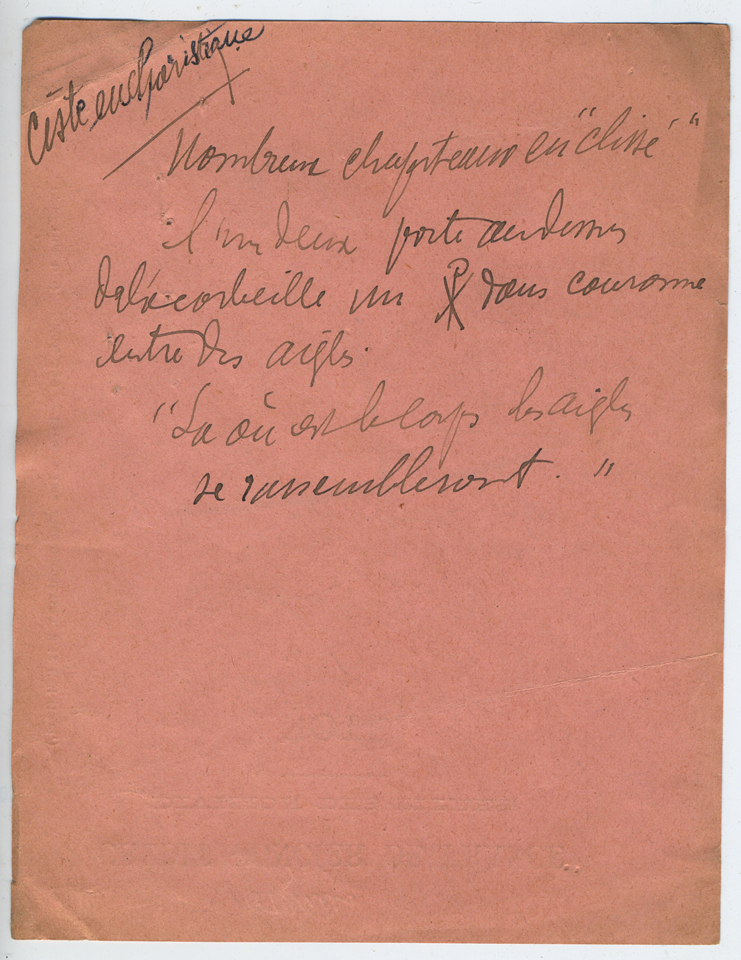 Ciste eucharistique
Nombreux chapiteaux en "clissé"
l'un deux porte au dessus
de la corbeille un ☧ dans couronne
entre des aigles.
"La où est le corps les aigles
se rassembleront. "